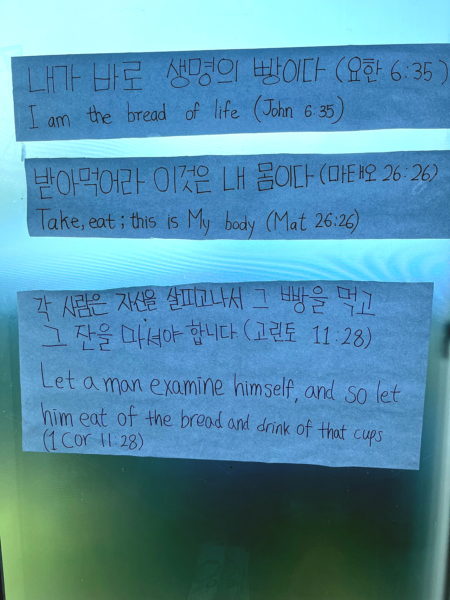 내가 바로 생명의 빵이다 (요한 6:35)
I am the bread of life (John 6:35)
받아먹어라 이것은 내 몸이다 (마태오 26:26)
Take, eat; this is My body (Mat 26:26)
각 사람은 자신을 살피고나서 그 빵을 먹고
그 잔을 마셔야 합니다 (고린토 11:28)
Let a man examine himself, and so let
him eat of the bread and drink of that cups
(1 Cor 11:28)